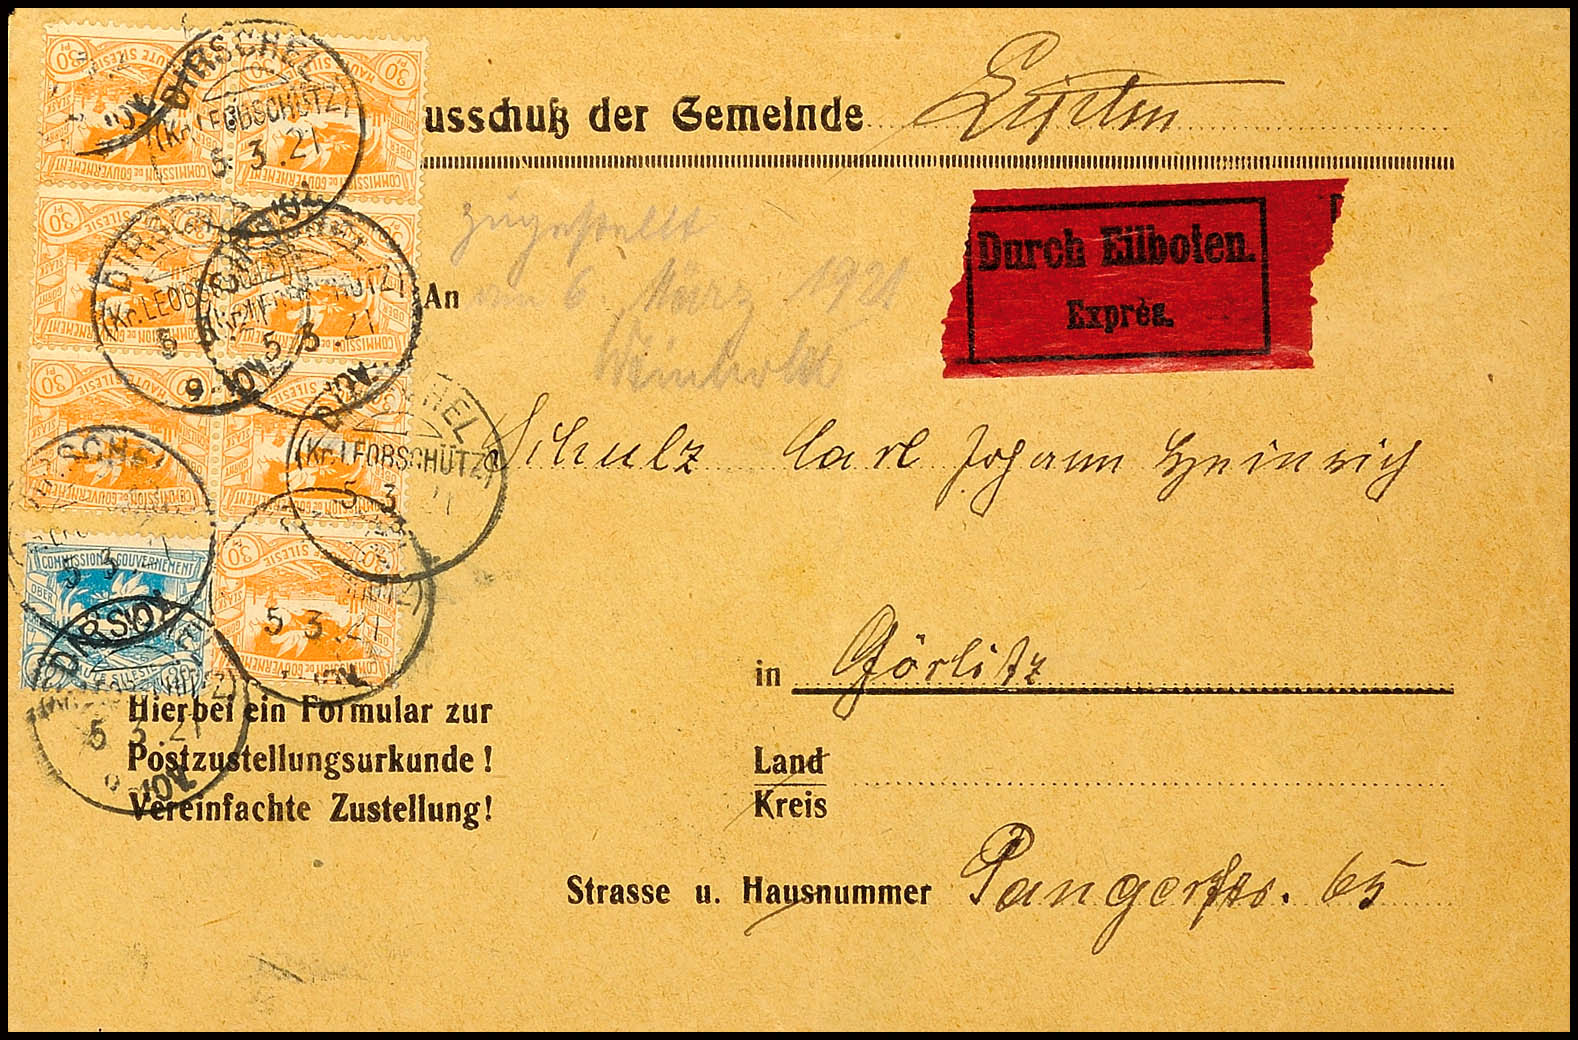 usschuß der Gemeinde
Durch Eilboten.
Exprès.
zugestellt
am 6. März 1921
An
Schulz Carl Johann Heinrich
in Görlitz
Hierbei ein Formular zur
Postzustellungsurkunde!
Vereinfachte Zustellung!
Land
Kreis
Strasse u. Hausnummer
65
30 Pf HAUTE SILESIE
COMMISSION DE GOUVERNEMENT
OBER
DIRSCHEL
(Kr. LEOBSCHÜTZ)
5.3.21